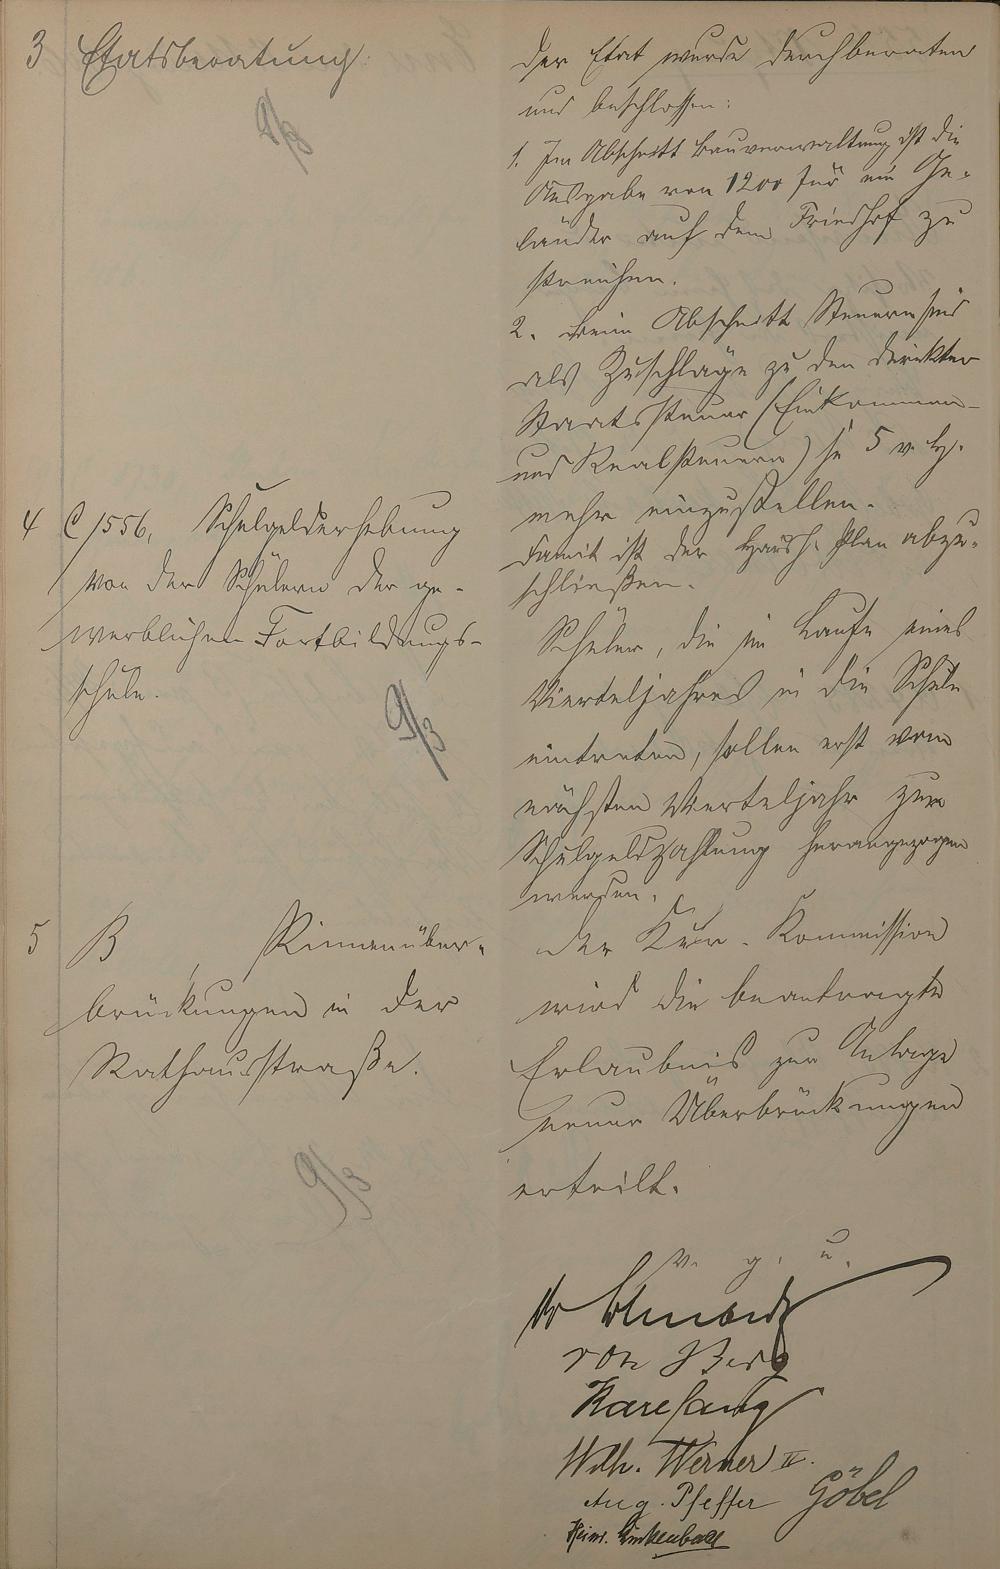 3 Etatsberatung.
9/3
Der Etat wurde durchberaten
und beschlossen:
1. Im Abschnitt Bauverwaltung ist die
Ausgabe von 1200 für ein Ge-
länder auf dem Friedhof zu
streichen.
2. Beim Abschnitt Steuern sind
als Zuschläge zu den direkten
Staatssteuern (Einkommen-
und Realsteuern) je 5 v. H.
mehr einzustellen.
Damit ist der Haush. Plan abzu-
schließen.
4 C 1556, Schulgelderhebung
von den Schülern der ge-
werblichen Fortbildungs-
schule.
9/3
Schüler, die im Laufe eines
Vierteljahres in die Schule
eintreten, sollen erst vom
nächsten Vierteljahr zur
Schulgeldzahlung herangezogen
werden.
5 B , Rinnenüber-
brückungen in der
Rathausstraße.
9/3
Der Kur-Kommission
wird die beantragte
Erlaubnis zur Anlage
neuer Überbrückungen
erteilt.
v. g. u.
von Berg
Wilh. Werner II.
Aug. Pfeffer Göbel
Heinr.